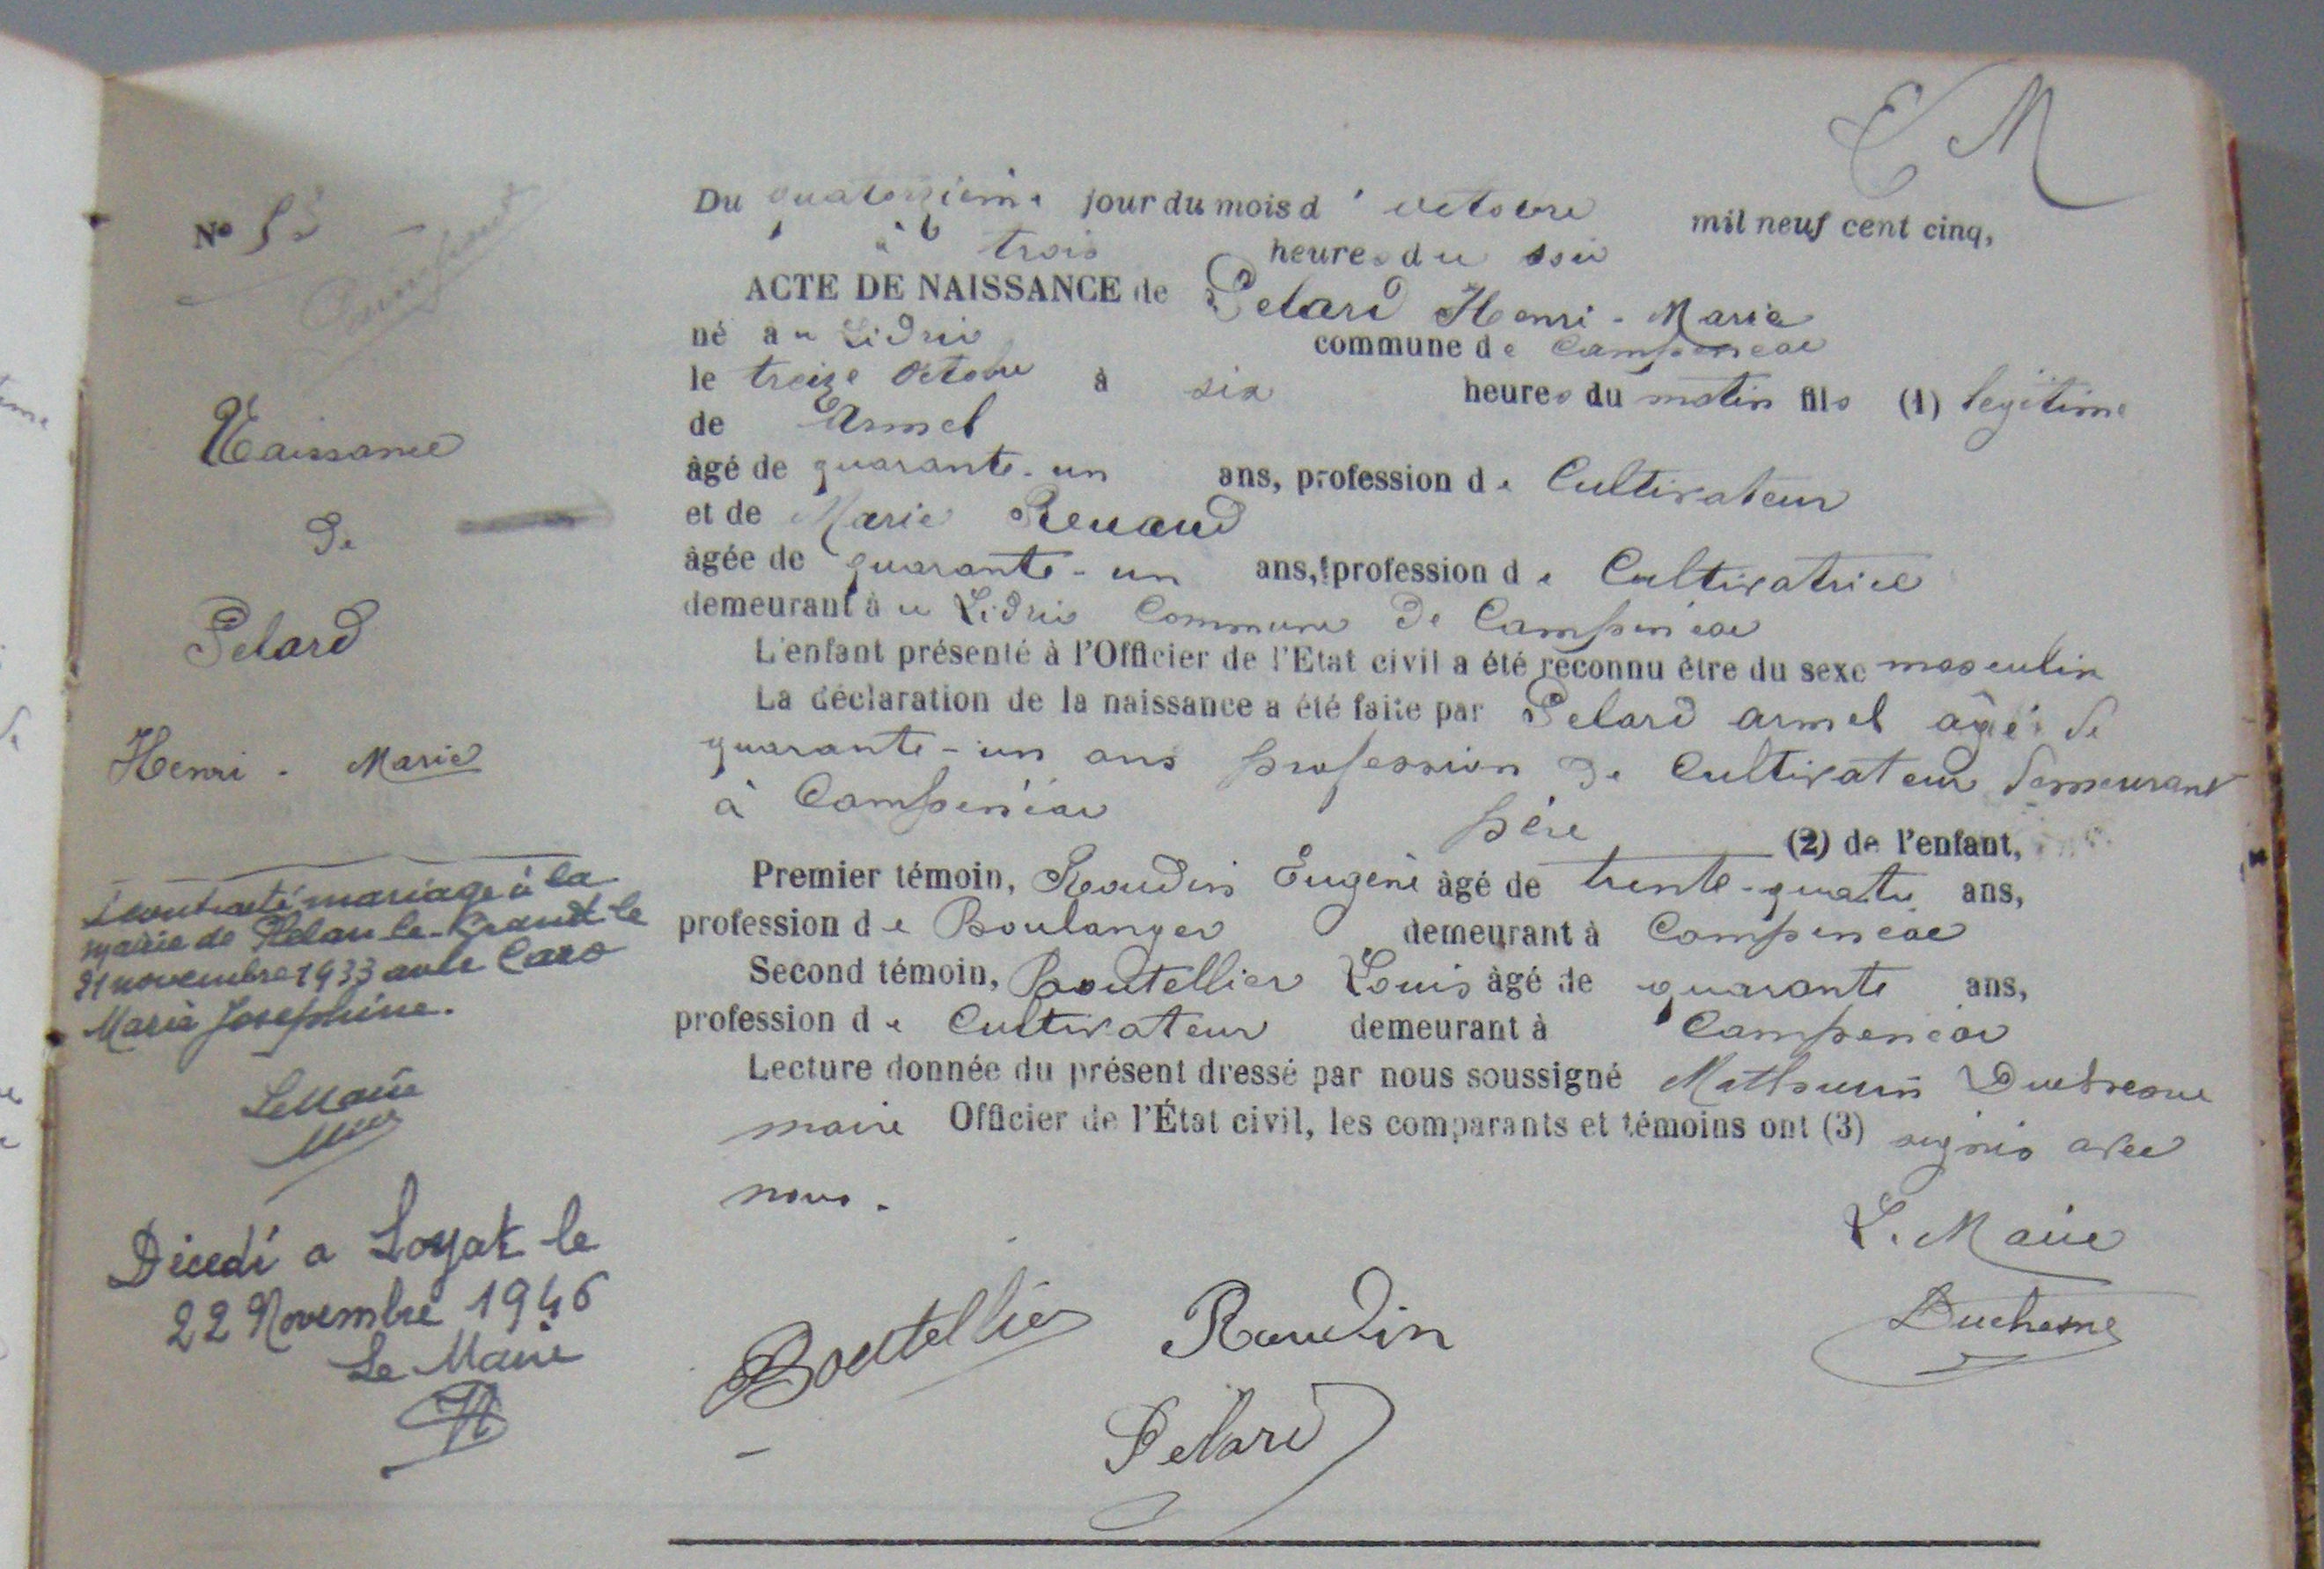 E M
N° 53
Du quatorzième jour du mois d' octobre mil neuf cent cinq,
à trois heures du soir
ACTE DE NAISSANCE de Pelard Henri - Marie
né au Lidrio commune de Campénéac
le treize Octobre à six heures du matin fils (1) légitime
de Armel
âgé de quarante-un ans, profession de Cultivateur
et de Marie Renaud
âgée de quarante-un ans, profession de Cultivatrice
demeurant au Lidrio Commune de Campénéac
L'enfant présenté à l'Officier de l'Etat civil a été reconnu être du sexe masculin
La déclaration de la naissance a été faite par Pelard Armel âgé de
quarante-un ans profession de Cultivateur demeurant
à Campénéac père (2) de l'enfant,
Premier témoin, Raoudin Eugène âgé de trente-quatre ans,
profession de Boulanger demeurant à Campénéac
Second témoin, Boutellier Louis âgé de quarante ans,
profession de Cultivateur demeurant à Campénéac
Lecture donnée du présent dressé par nous soussigné Mathurin Duchesne
maire Officier de l'État civil, les comparants et témoins ont (3) signés avec
nous.
L. Maire
Duchesne
Boutellier Raudin
Pelard
Naissance
de
Pelard
Henri - Marie
A contracté mariage à la
mairie de Plélan-le-Grand le
21 novembre 1933 avec Caro
Marie Joséphine.
Le Maire
Décédé a Loyat le
22 Novembre 1946
Le Maire